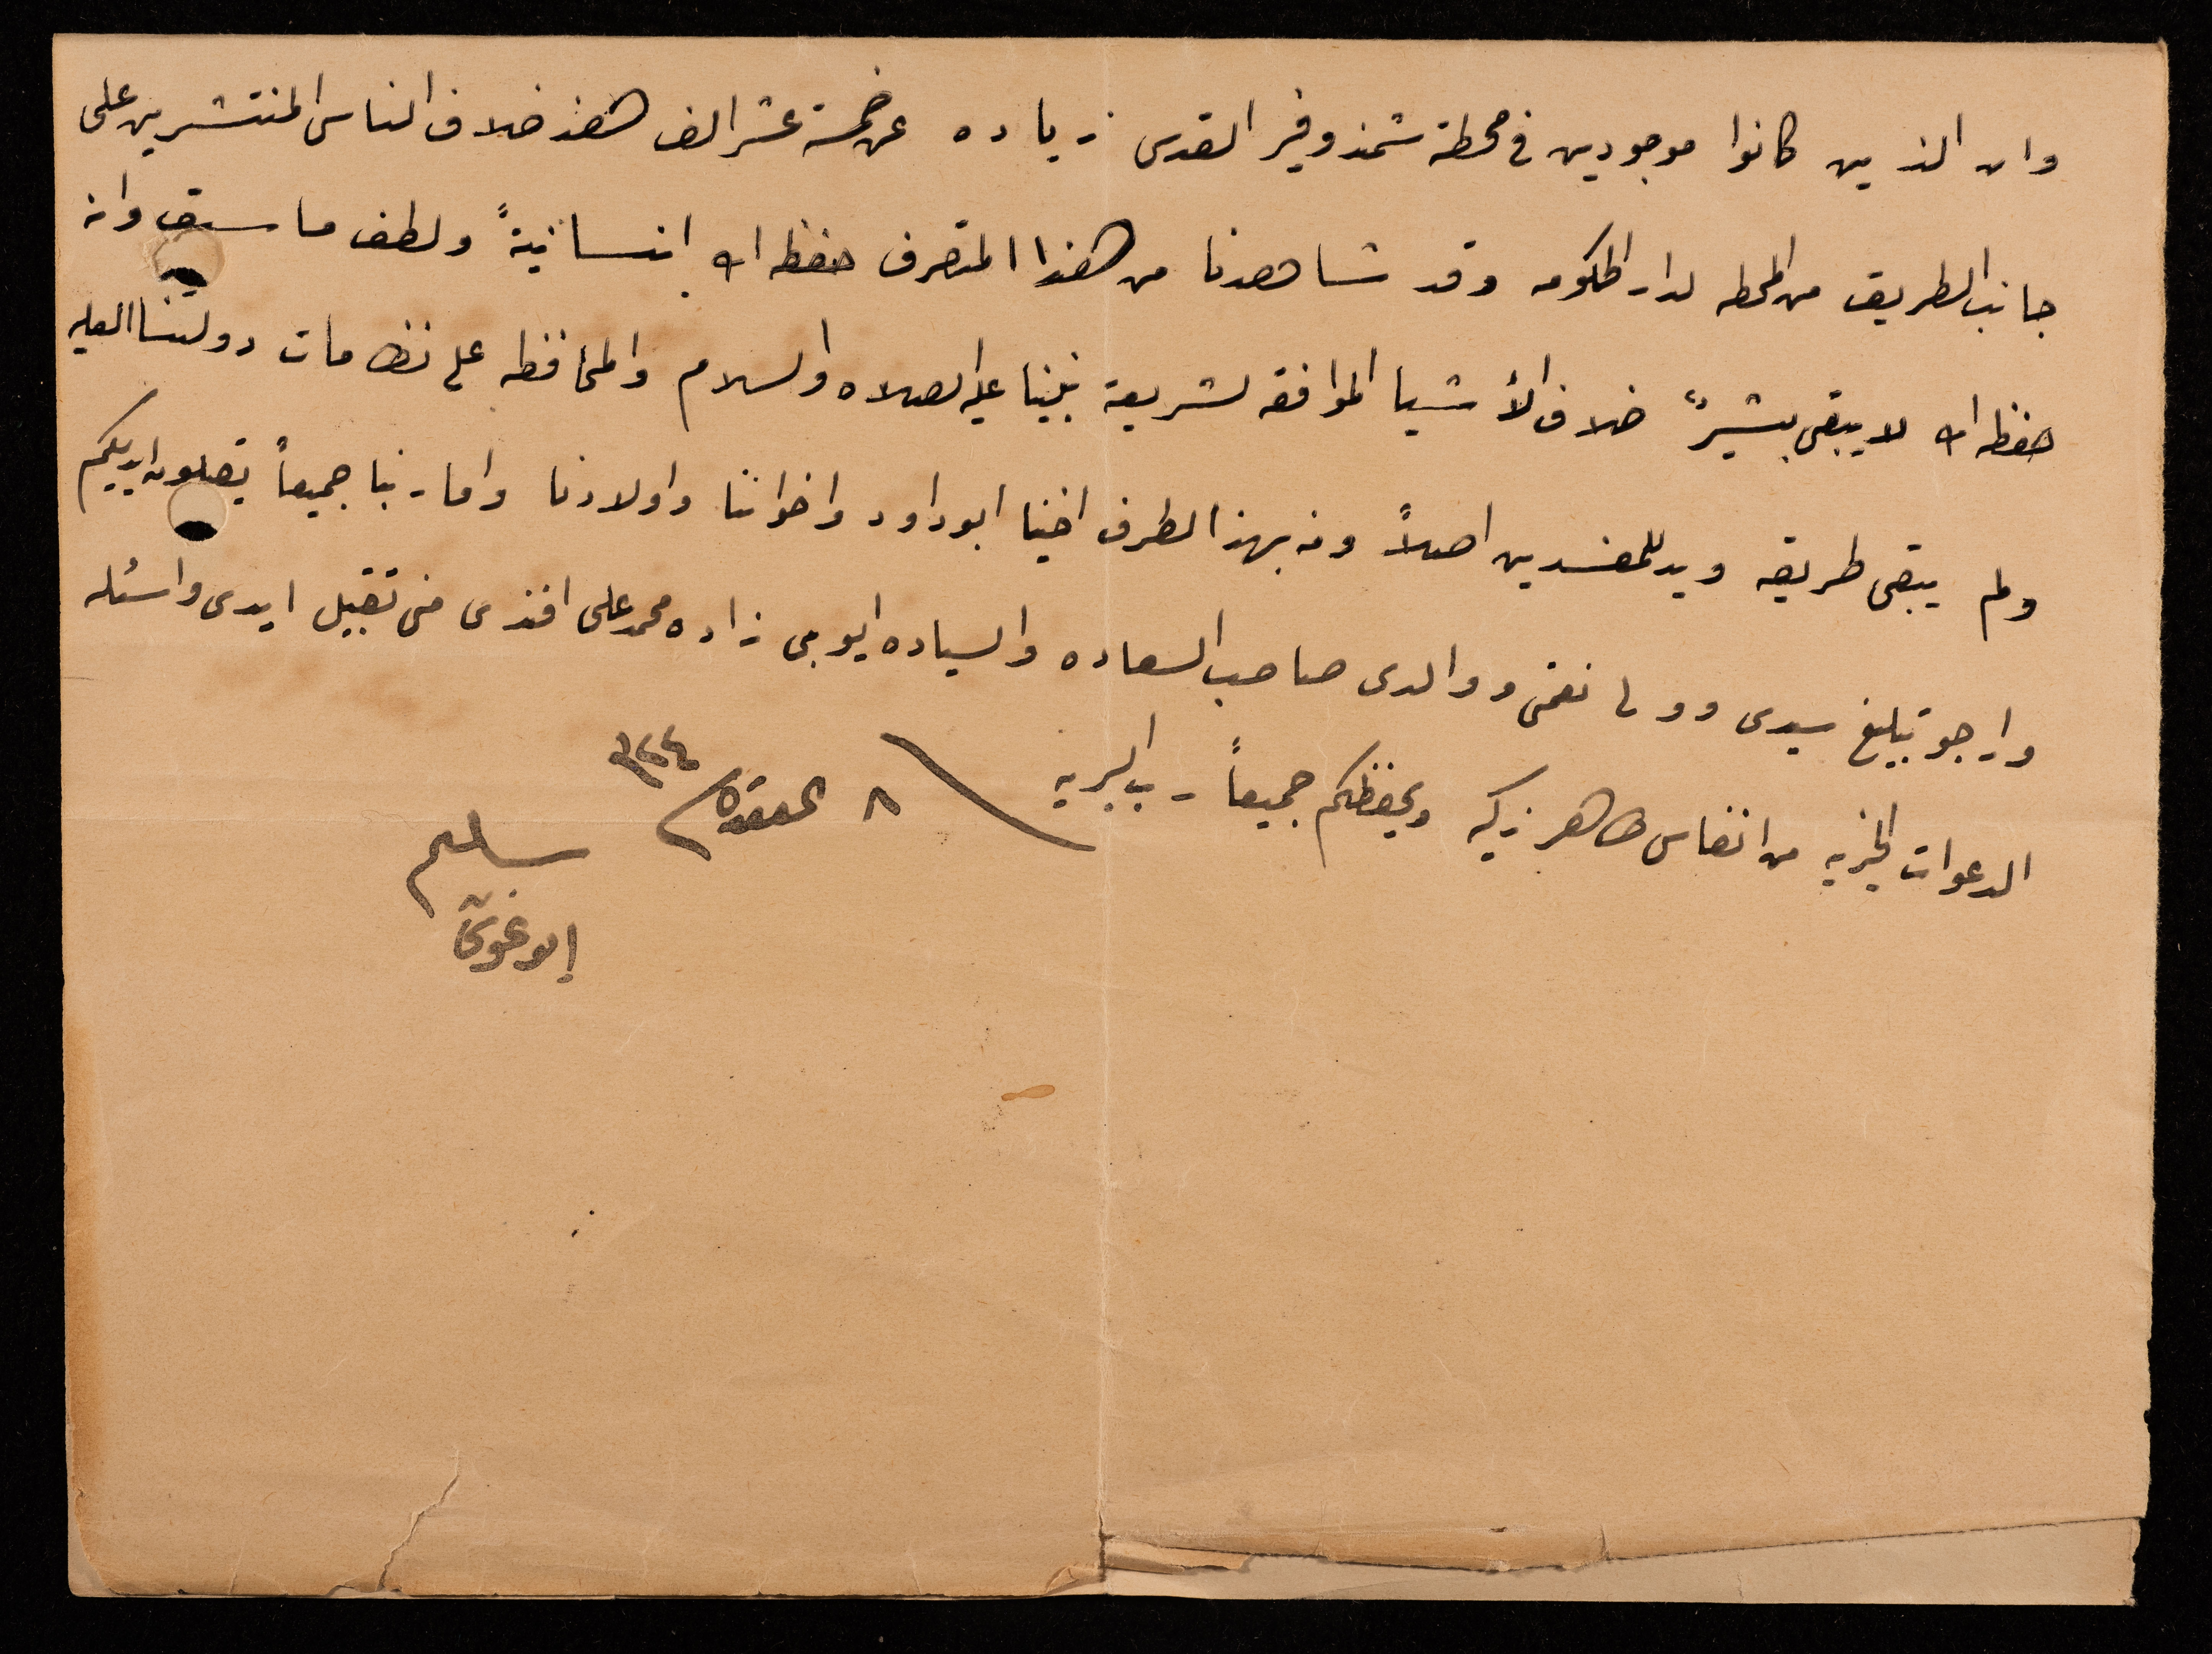 وان الذين كانوا موجودين في محطة شمندوفير القدس زياده عن خمسة عشر الف هذه خلاف الناس المنتشرين على
جانب الطريق من المحطه لدار الحكومه وقد شاهدنا من هذا المتصرف حفظه الله انسانيةً ولطف ما سبق وانه
حفظه الله لا يبقى خلاف الأشيا الموافقه لشريعة نبينا عليه الصلاه والسلام والمحافظه على نظامات دولتنا العليه
ولم يبقى طريقه ويد للمفسدين اصلاً ومن بهذا الطرف اخينا ابو داود واخواننا واولادنا واقاربنا جميعاً يقبلون ايديكم
وارجو تبليغ سيدى وولى نعمتى ووالدى صاحب السعاده والسياده ايوبى زاده محمد على افندى منى تقبيل ايدى واسئله
الدعوات الخيريه من انفاس طاهر زكيه ويحفظكم جميعاً رب البريه
٨ القعده ٣٢٤
سليم
ابو غوش